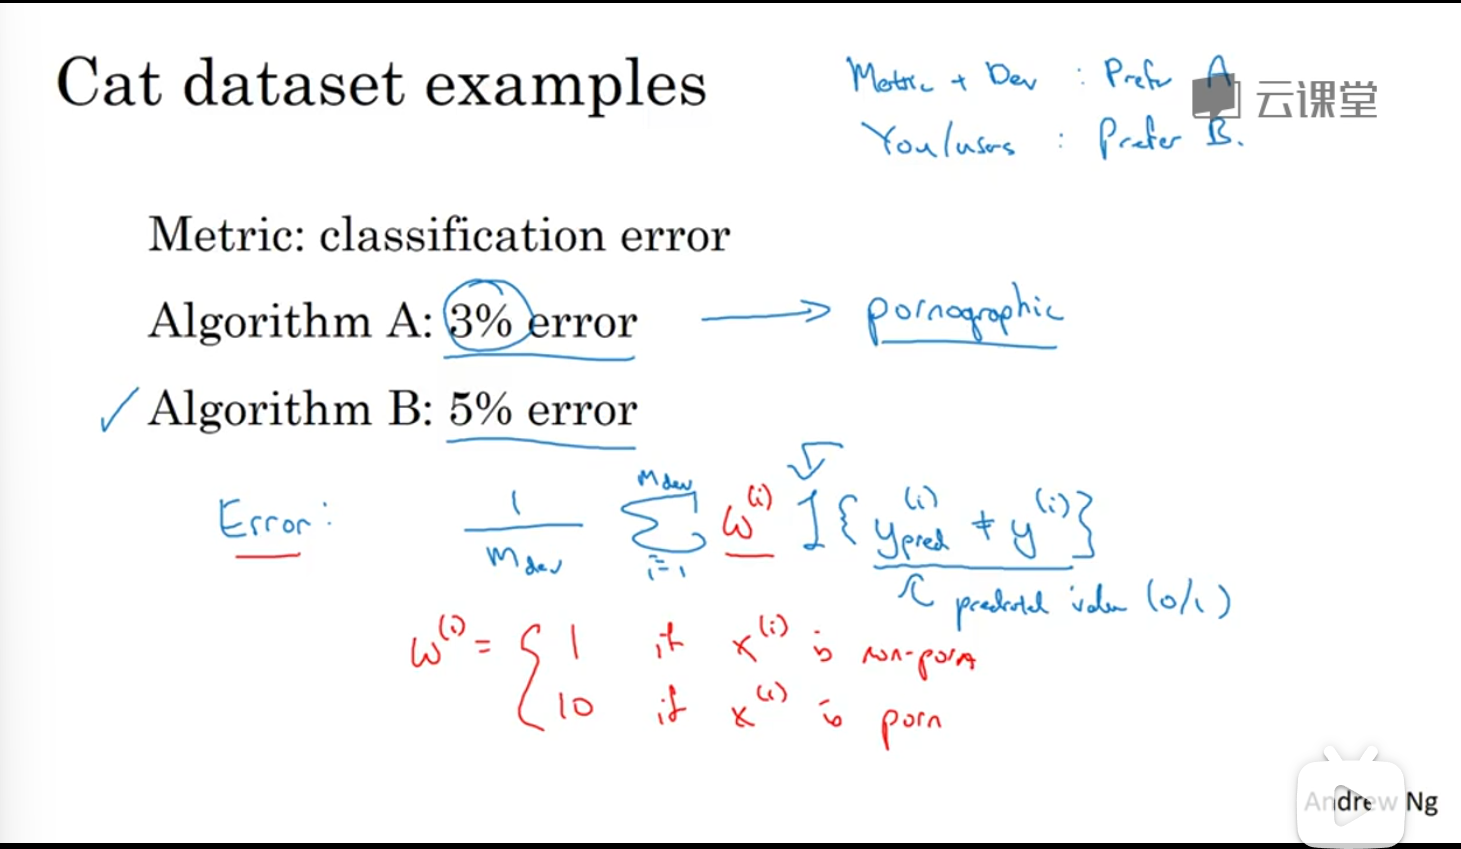 Cat dataset examples
Metric + Dev : Prefer A
You/users : Prefer B.
云课堂
Metric: classification error
Algorithm A: 3% error → pornographic
✓ Algorithm B: 5% error
Error: 1/m_dev ∑_{i=1}^{m_dev} w^(i) I{y_pred^(i) ≠ y^(i)}
predicted value (0/1)
w^(i) = { 1 if x^(i) is non-porn
10 if x^(i) is porn
Andrew Ng